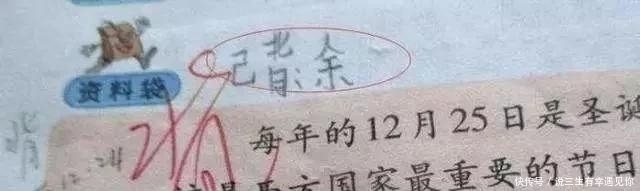 余
资料袋
背
背
12.24
每年的12月25日是圣诞
是西方国家最重要的节日
快传号 / 说三生有幸遇见你